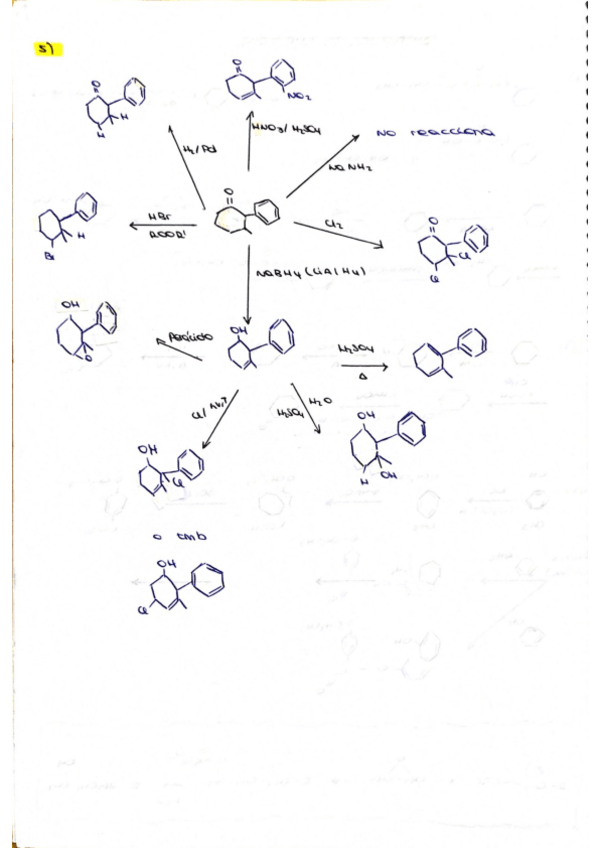 5)
O
O
NO2
H
H
H2/Pd
HNO3/H2SO4
NO reacciona
NaNH2
HBr
ROOR'
O
Cl2
O
Cl
Cl
H
Br
NaBH4 (LiAlH4)
OH
O
Perácido
OH
H2SO4
Δ
H2SO4
H2O
OH
H
OH
OH
Cl
o tmb
OH
Cl